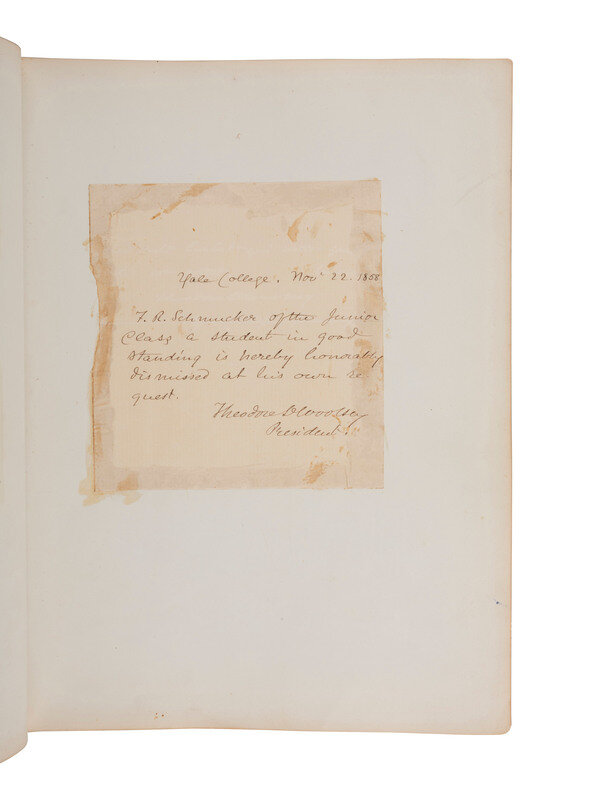 Yale College. Nov. 22. 1858
F. R. Schmucker of the Junior
Class a student in good
standing is hereby honorably
dismissed at his own re
quest.
Theodore D Woolsey
President.